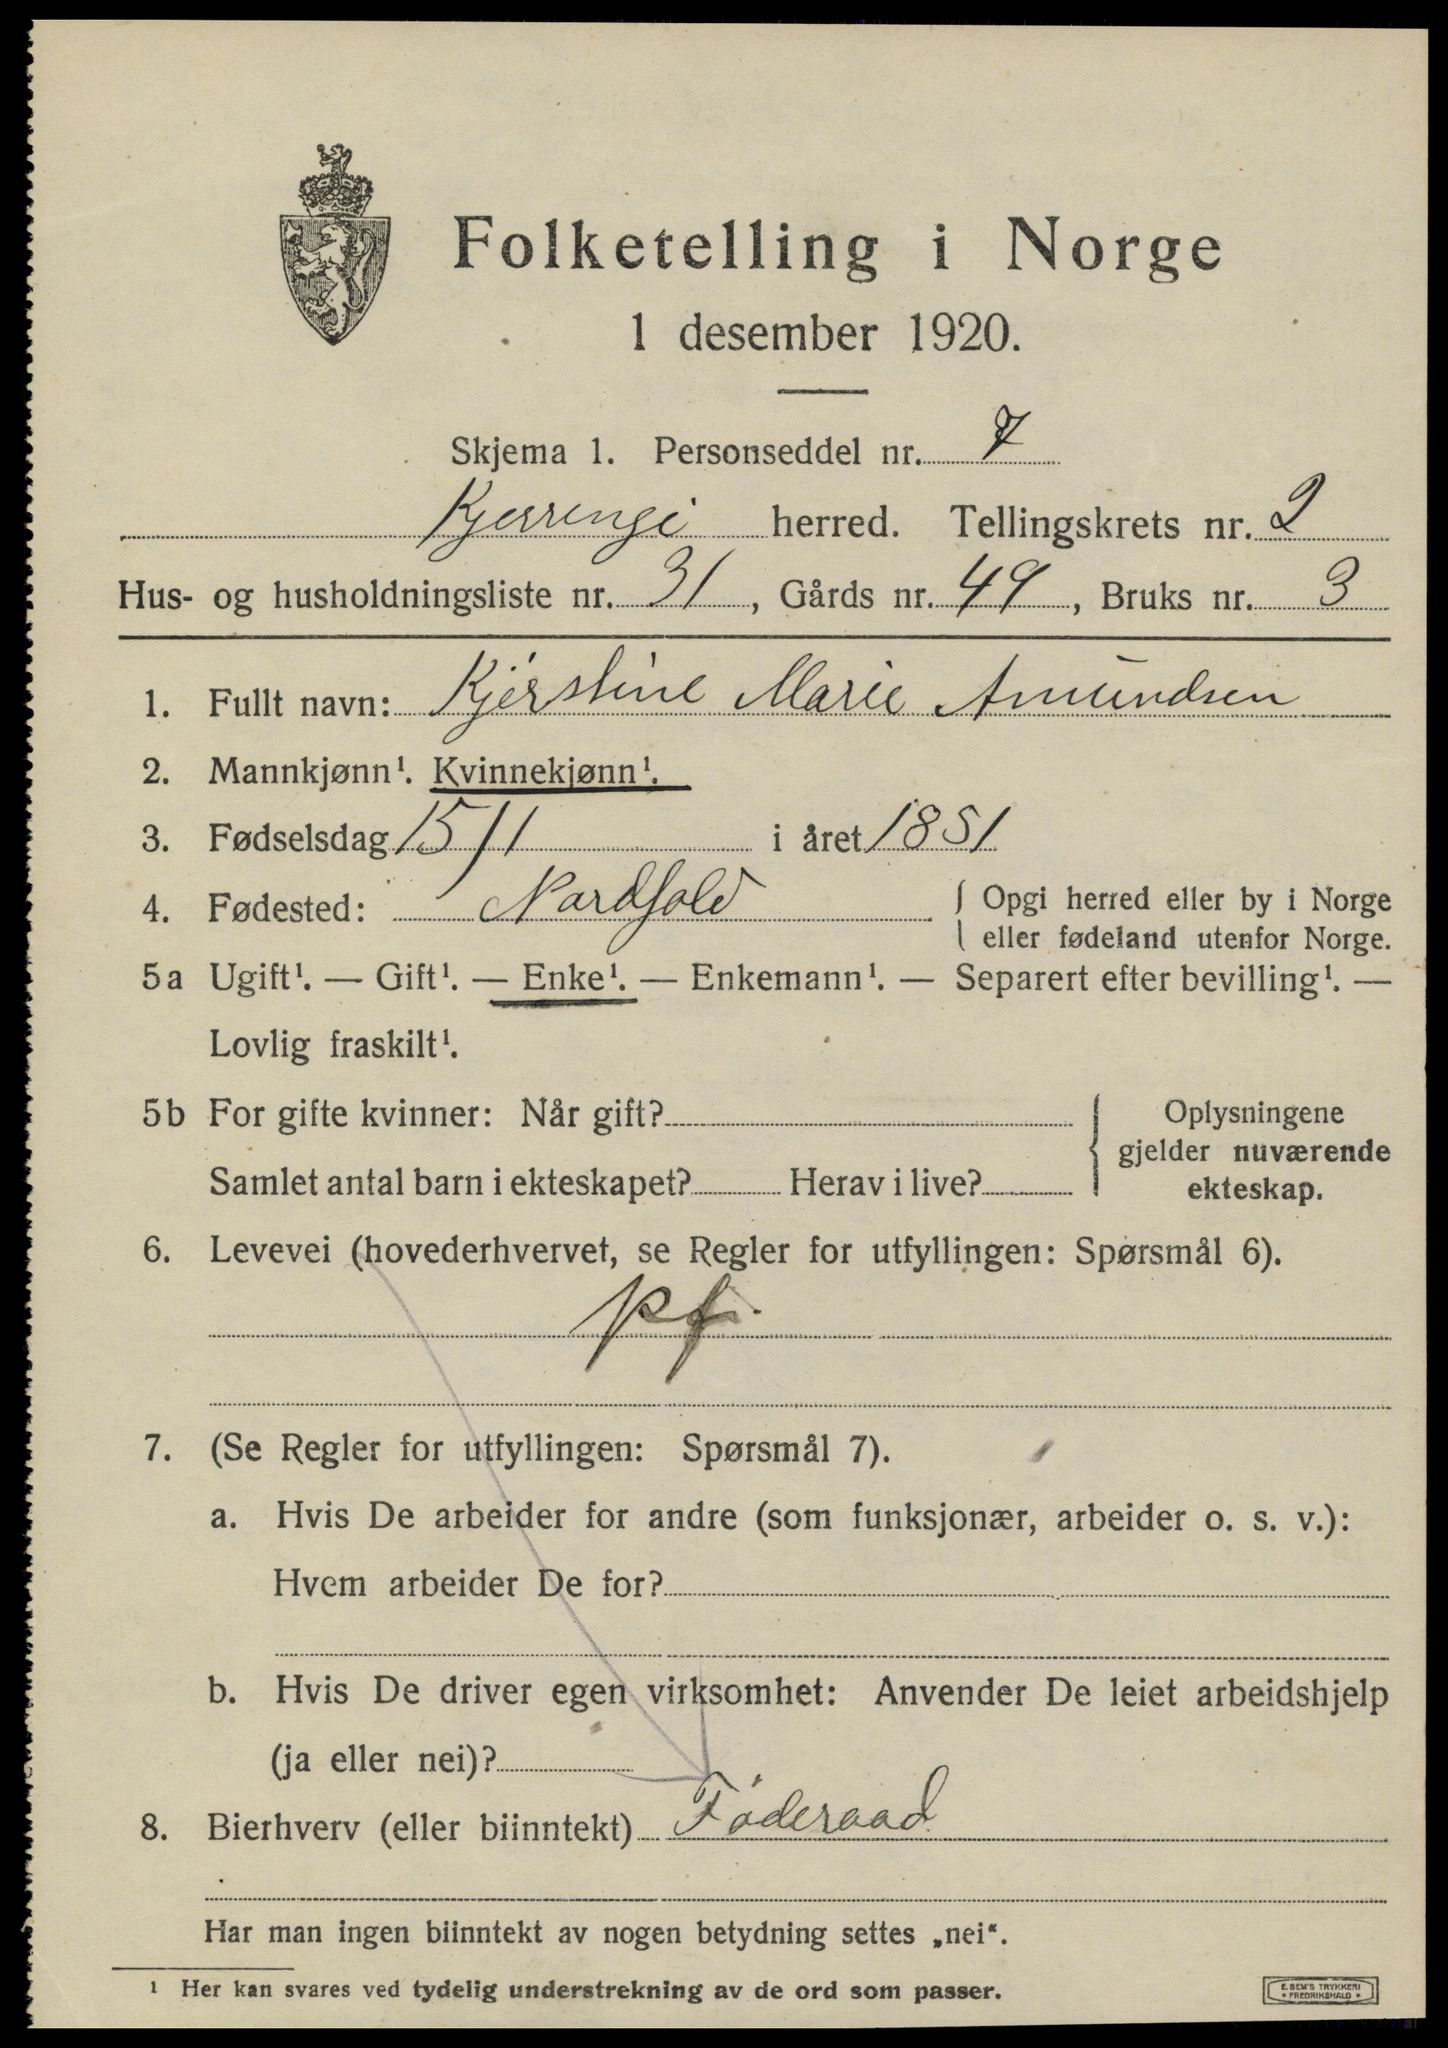 Folketelling i Norge
1 desember 1920.
Skjema 1. Personseddel nr. 7
Kjerringø herred. Tellingskrets nr. 2
Hus- og husholdningsliste nr. 31, Gårds nr. 49, Bruks nr. 3
1. Fullt navn: Kjerstine Marie Amundsen
2. Mannkjønn¹. Kvinnekjønn¹.
3. Fødselsdag 15/1 i året 1851
4. Fødested: Nordfold { Opgi herred eller by i Norge
eller fødeland utenfor Norge.
5a Ugift¹. — Gift¹. — Enke¹. — Enkemann¹. — Separert efter bevilling¹. —
Lovlig fraskilt¹.
5b For gifte kvinner: Når gift? { Oplysningene
gjelder nuværende
Samlet antal barn i ekteskapet? Herav i live? ekteskap.
6. Levevei (hovederhvervet, se Regler for utfyllingen: Spørsmål 6).
pf.
7. (Se Regler for utfyllingen: Spørsmål 7).
a. Hvis De arbeider for andre (som funksjonær, arbeider o. s. v.):
Hvem arbeider De for?
b. Hvis De driver egen virksomhet: Anvender De leiet arbeidshjelp
(ja eller nei)?
8. Bierhverv (eller biinntekt) Föderaad
Har man ingen biinntekt av nogen betydning settes „nei“.
¹ Her kan svares ved tydelig understrekning av de ord som passer.
E. SEM'S TRYKKERI
* FREDRIKSHALD *